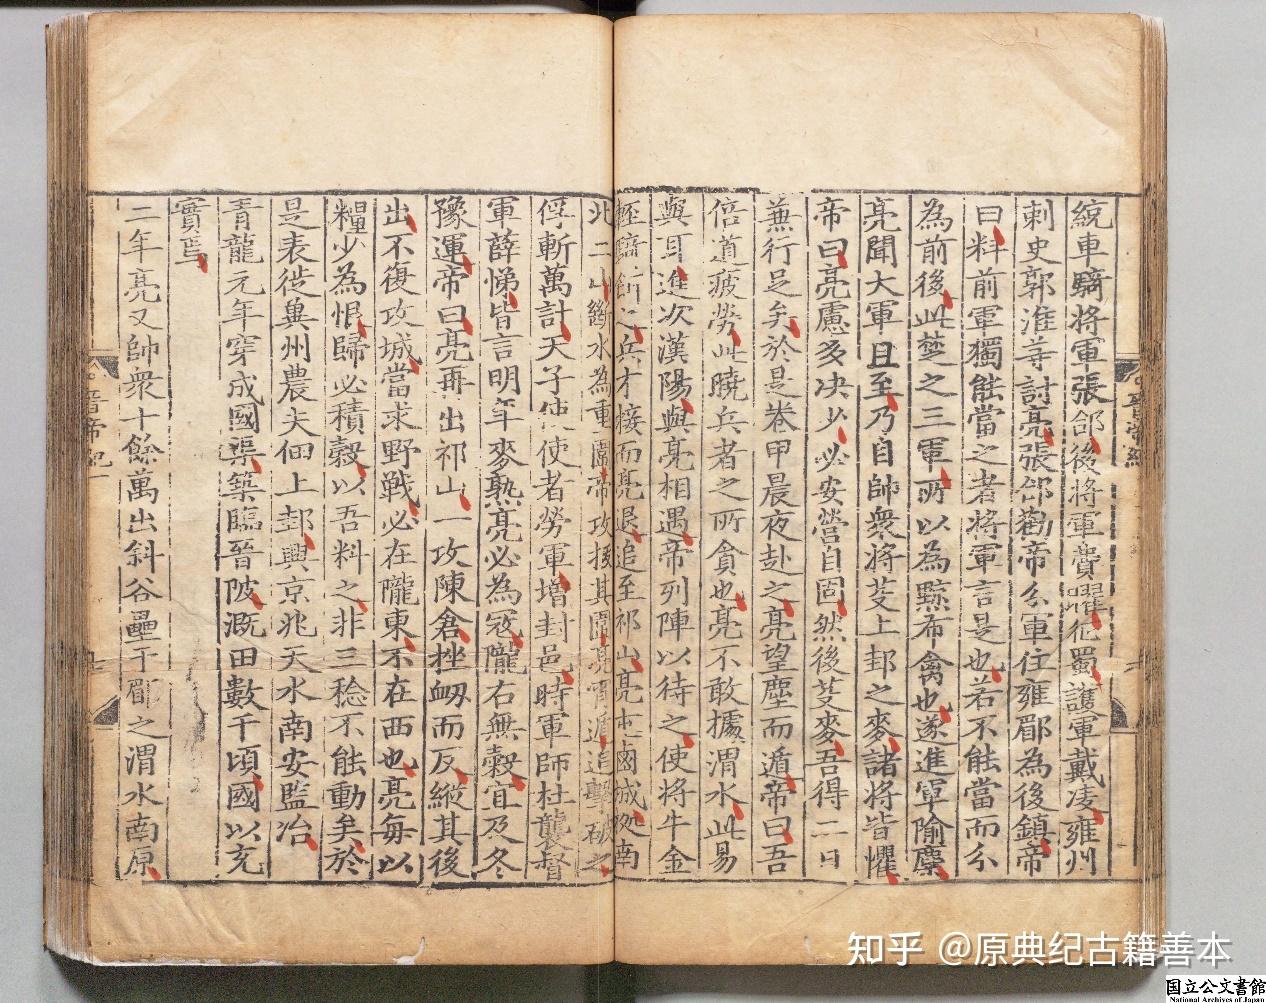 統車騎將軍張郃後將軍費曜征蜀護軍戴凌雍州
刺史郭淮等討亮張郃勸帝分軍住雍郿為後鎮帝
曰料前軍獨能當之者將軍言是也若不能當而分
為前後此楚之三軍所以為黥布禽也遂進軍隃麋
亮聞大軍且至乃自帥衆將芟上邽之麥諸將皆懼
帝曰亮慮多决少必安營自固然後芟麥吾得二日
兼行足矣於是卷甲晨夜赴之亮望塵而遁帝曰吾
倍道疲勞此曉兵者之所貪也亮不敢據渭水此易
與耳進次漢陽與亮相遇帝列陣以待之使將牛金
輕騎餌之兵才接而亮退追至祁山亮屯鹵城從南
北二山斷水為重圍帝攻拔其圍亮宵遁追擊破之
俘斬萬計天子使使者勞軍增封邑時軍師杜襲督
軍薛悌皆言明年麥熟亮必為寇隴右無穀宜及冬
豫運帝曰亮再出祁山一攻陳倉挫衂而反縱其後
出不復攻城當求野戰必在隴東不在西也亮每以
糧少為恨歸必積穀以吾料之非三稔不能動矣於
是表徙冀州農夫佃上邽興京兆天水南安監冶
青龍元年穿成國渠築臨晉陂溉田數千頃國以充
實焉
二年亮又帥衆十餘萬出斜谷壘于郿之渭水南原
晉帝紀一
知乎 @原典纪古籍善本
国立公文書館
National Archives of Japan